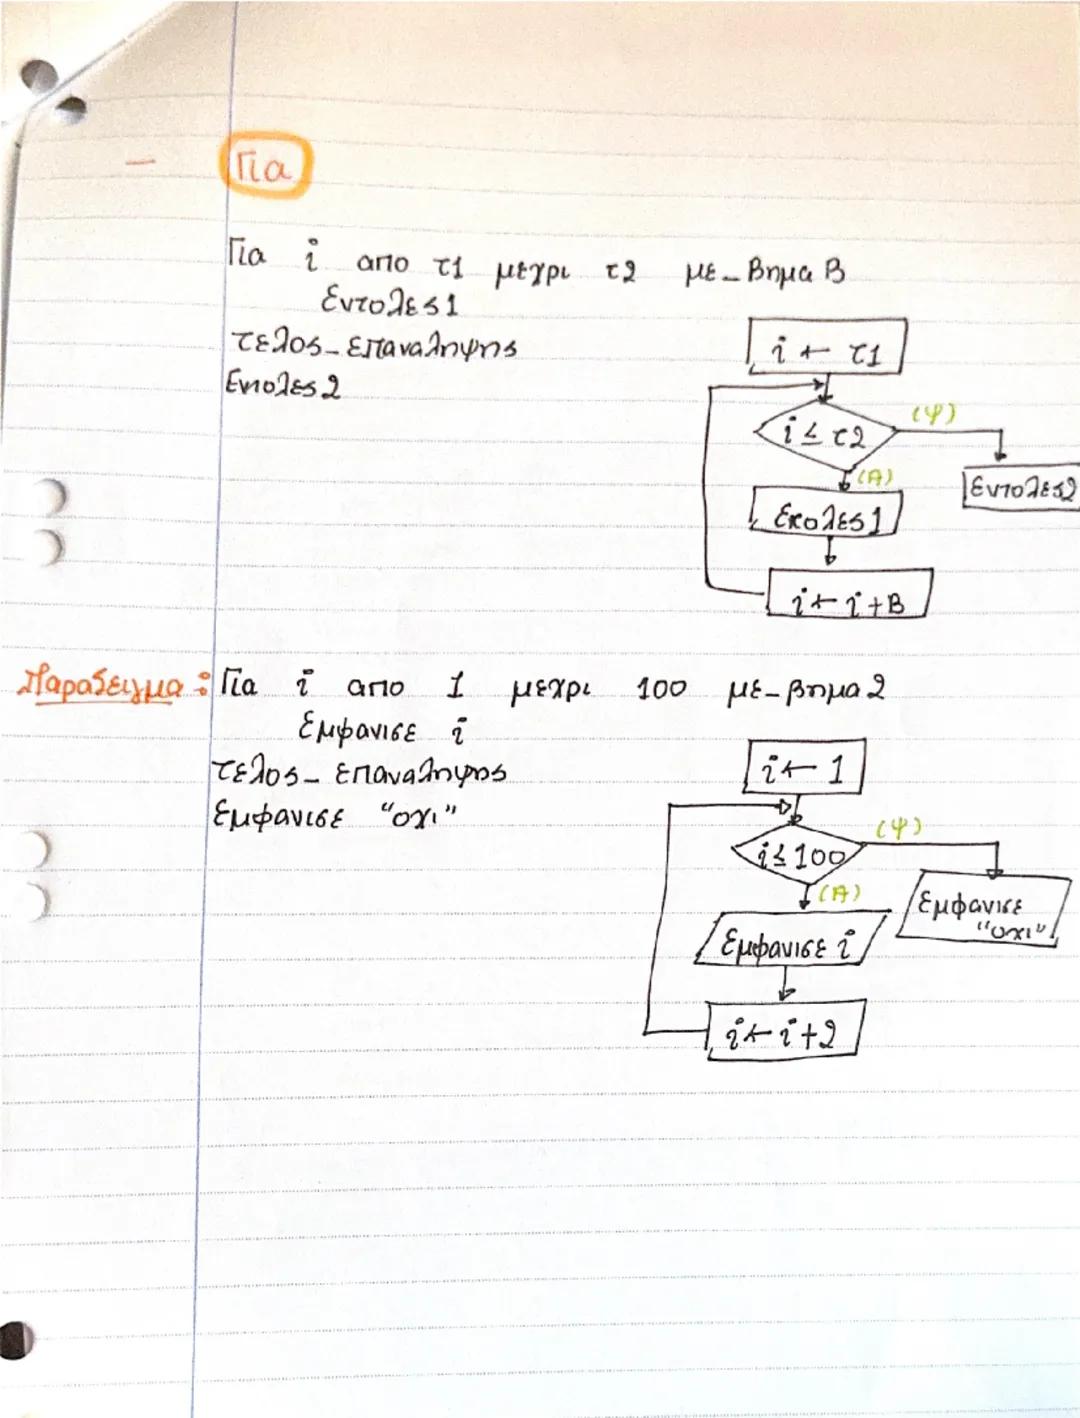 — Για
Για i απο τ1 μεχρι τ2 με_βημα Β
Εντολες1
τελος_επαναληψης
Εντολες2
i ← τ1
i ≤ τ2
(Ψ)
(Α)
Εντολες2
Εντολες1
i ← i+Β
Παραδειγμα: Για i απο 1 μεχρι 100 με_βημα 2
Εμφανισε i
τελος_επαναληψης
Εμφανισε "οχι"
i ← 1
i ≤ 100
(Ψ)
(Α)
Εμφανισε
"οχι"
Εμφανισε i
i ← i+2